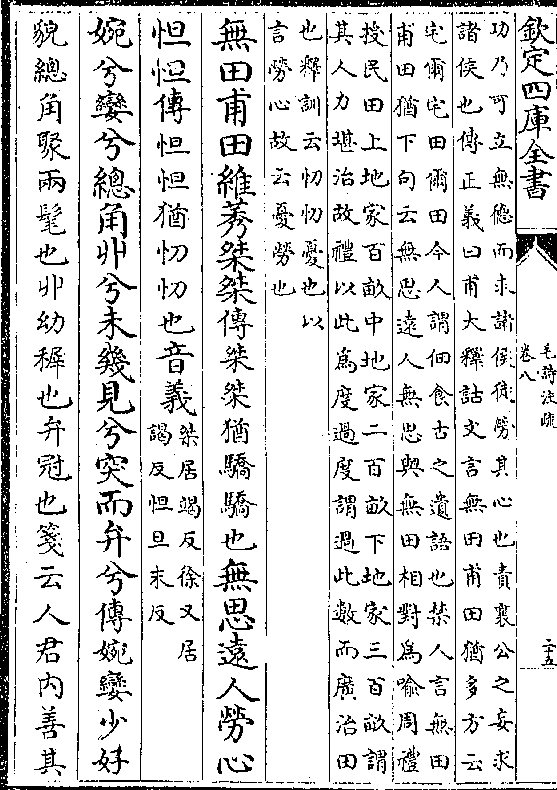 欽定四庫全書
毛詩注疏
卷八
二十五
功乃可立無德而求諸侯徒勞其心也責襄公之妄求
諸侯也傳正義曰甫大釋詁文言無田甫田猶多方云
宅爾宅田爾田今人謂佃食古之遺語也禁人言無田
甫田猶下句云無思遠人無思與無田相對為喻周禮
授民田上地家百畝中地家二百畝下地家三百畝謂
其人力堪治故禮以此為度過度謂過此數而廣治田
也釋訓云忉忉憂也以
言勞心故云憂勞也
無田甫田維莠桀桀傳桀桀猶驕驕也無思遠人勞心
怛怛傳怛怛猶忉忉也音義
桀居竭反徐又居
謁反怛旦末反
婉兮孌兮總角丱兮未幾見兮突而弁兮傳婉孌少好
貌總角聚兩髦也丱幼穉也弁冠也箋云人君內善其